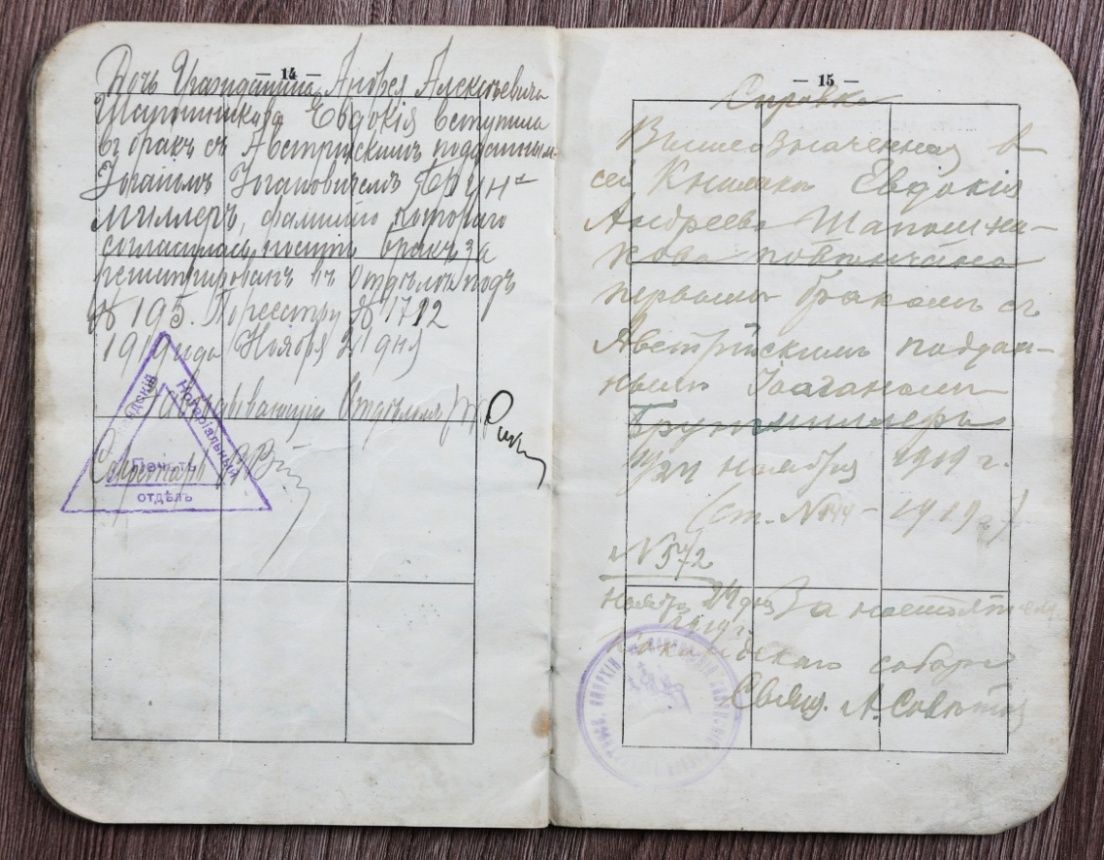 — 14 —
Дочь Гражданина Андрея Алексѣевича
Шапошникова Евдокія вступила
въ бракъ съ Австрійскимъ подданнымъ
Іоганомъ Іогановичемъ Брун-
миллеръ, фамилію котораго
согласилась носить бракъ за
регистрированъ въ Отдѣлѣ подъ
№ 195. По реестру № 1712
1919 года Ноября 21 дня
Завѣдывающій Отдѣломъ
Секретарь
Нотаріальный
Печать
отдѣлъ
— 15 —
Справка
Вышеозначенная в
сей Книжкѣ Евдокія
Андреева Шапошни-
кова повѣнчана
первымъ бракомъ съ
Австрійскимъ поддан-
нымъ Іоаганомъ
Брунмиллеръ
ноября 1919 г.
(ст. № – 1919 г.)
№ 572
ноября 24 дня За настоятеля
1919 г.
собора
Свящ. А.